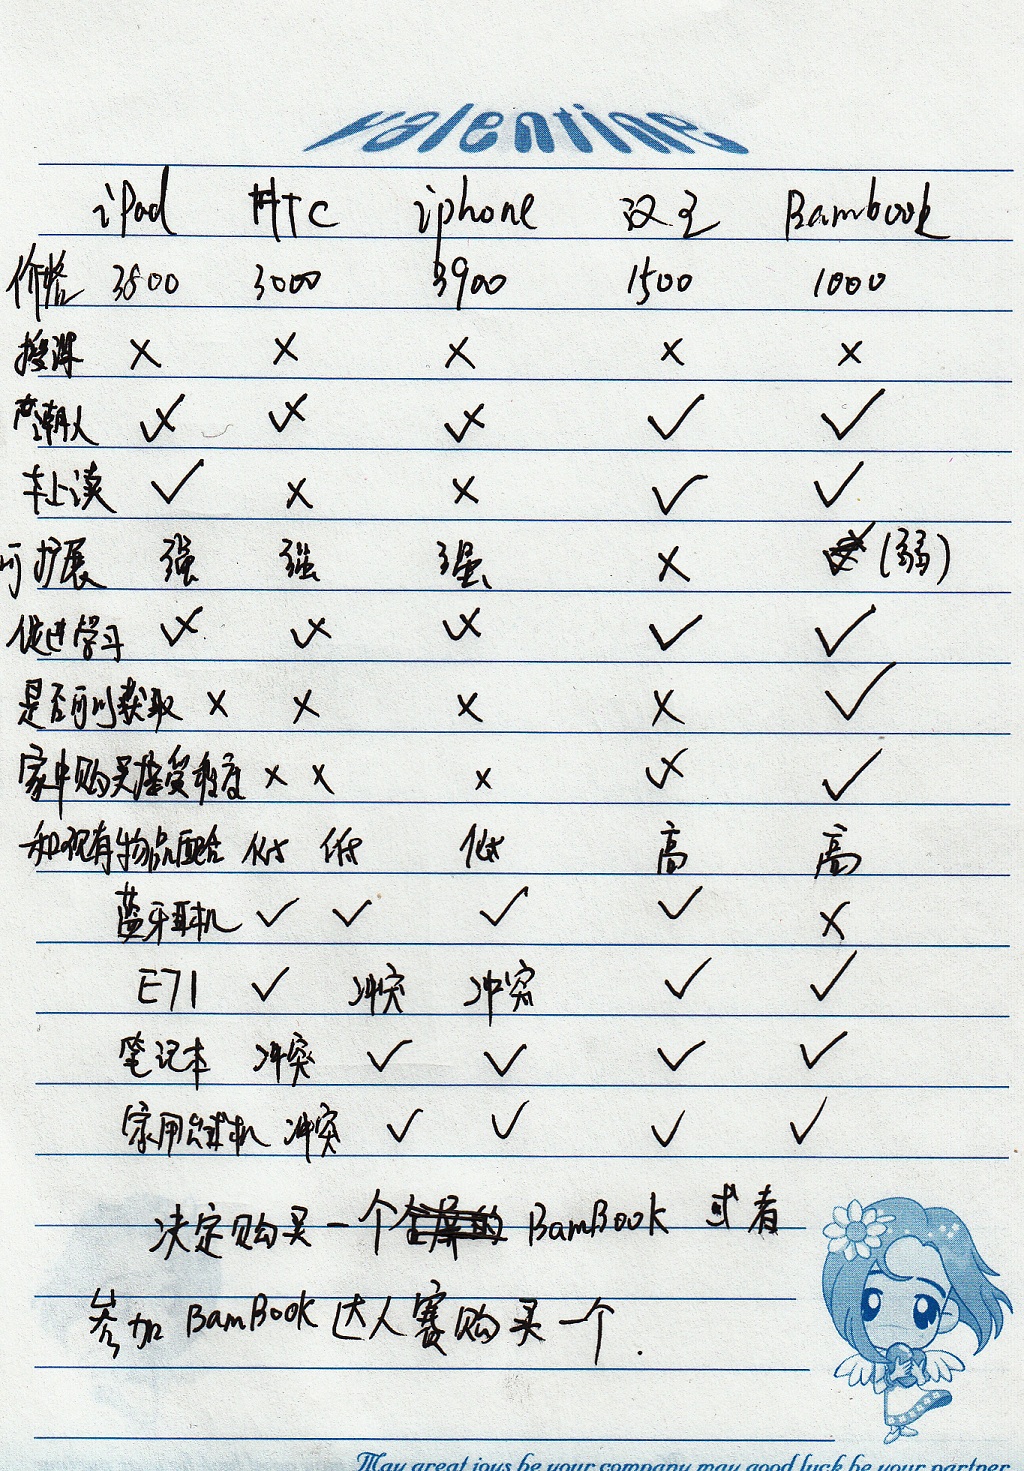 valentine
iPad HTC iphone 汉王 Bambook
价格 3800 3000 3900 1500 1000
× × × × ×
潮人 ✓× ✓× ✓× ✓ ✓
车上读 ✓ × × ✓ ✓
可扩展 强 强 强 × (弱)
促进学习 ✓× ✓× ✓× ✓ ✓
是否可以获取 × × × × ✓
家中购买接受难度 × × × ✓× ✓
和现有物品配合 低 低 低 高 高
蓝牙耳机 ✓ ✓ ✓ ✓ ×
E71 ✓ 冲突 冲突 ✓ ✓
笔记本 冲突 ✓ ✓ ✓ ✓
家用台式机 冲突 ✓ ✓ ✓ ✓
决定购买一个 BamBook 或者
参加 BamBook 达人赛购买一个.
May great joys be your company may good luck be your partner